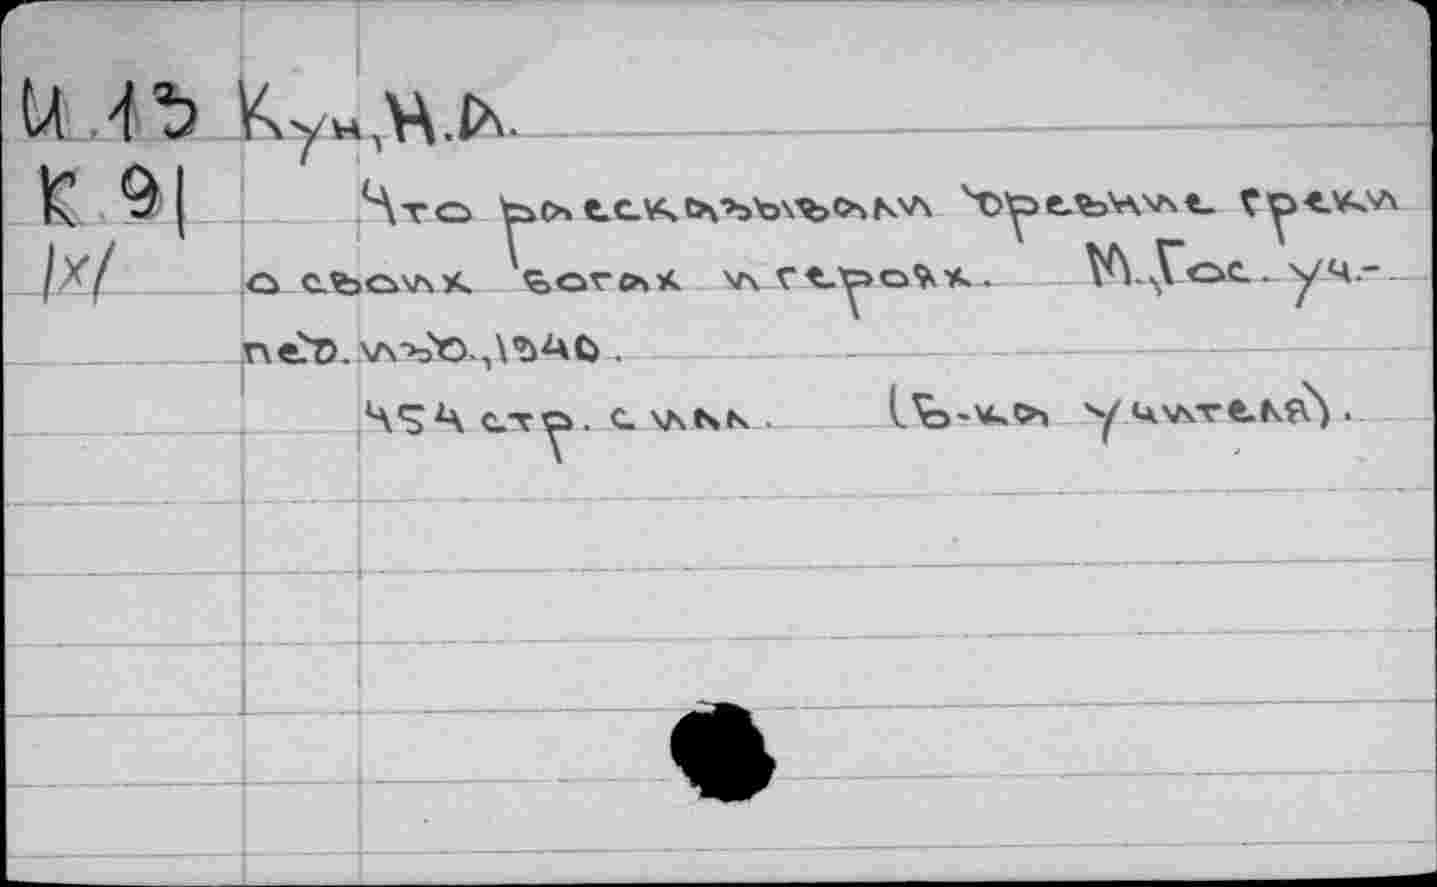 И 13 Кун,Н.А.
К 91 Что рассказывали древние греки
/х/ о своих богах и героях. М.,Гос. уч.-
пед.изд.,1940.
454 стр. с илл. (Б-ка учителя).